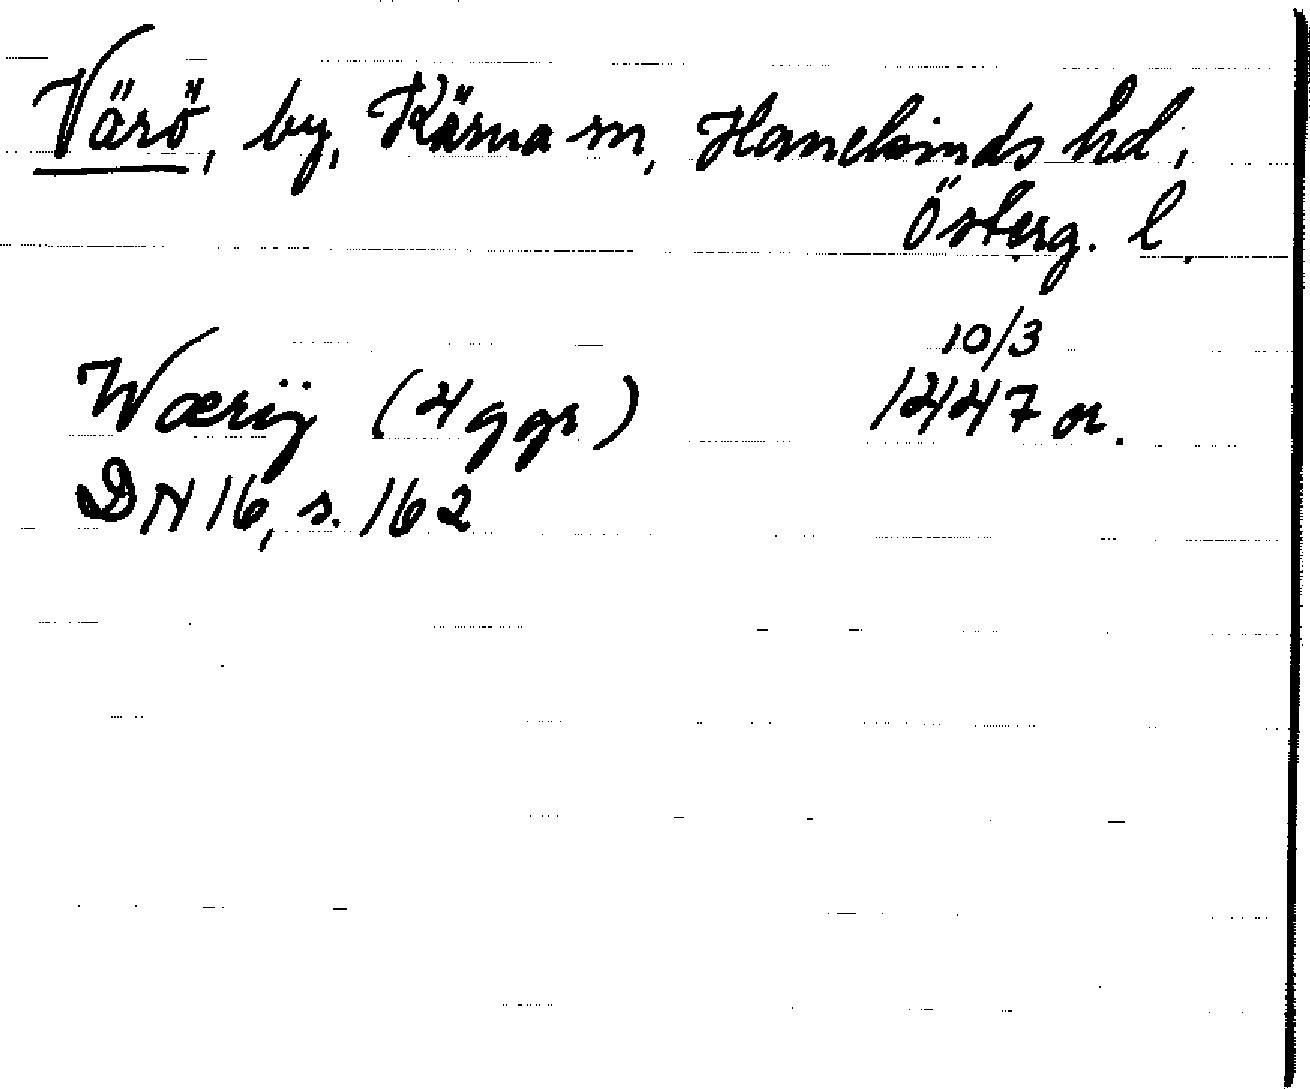 Värö, by, Kärna sn, Hanekinds hd,
Österg. l.
10/3
Wærij (4 ggr) 1447 or.
DN 16, s. 162